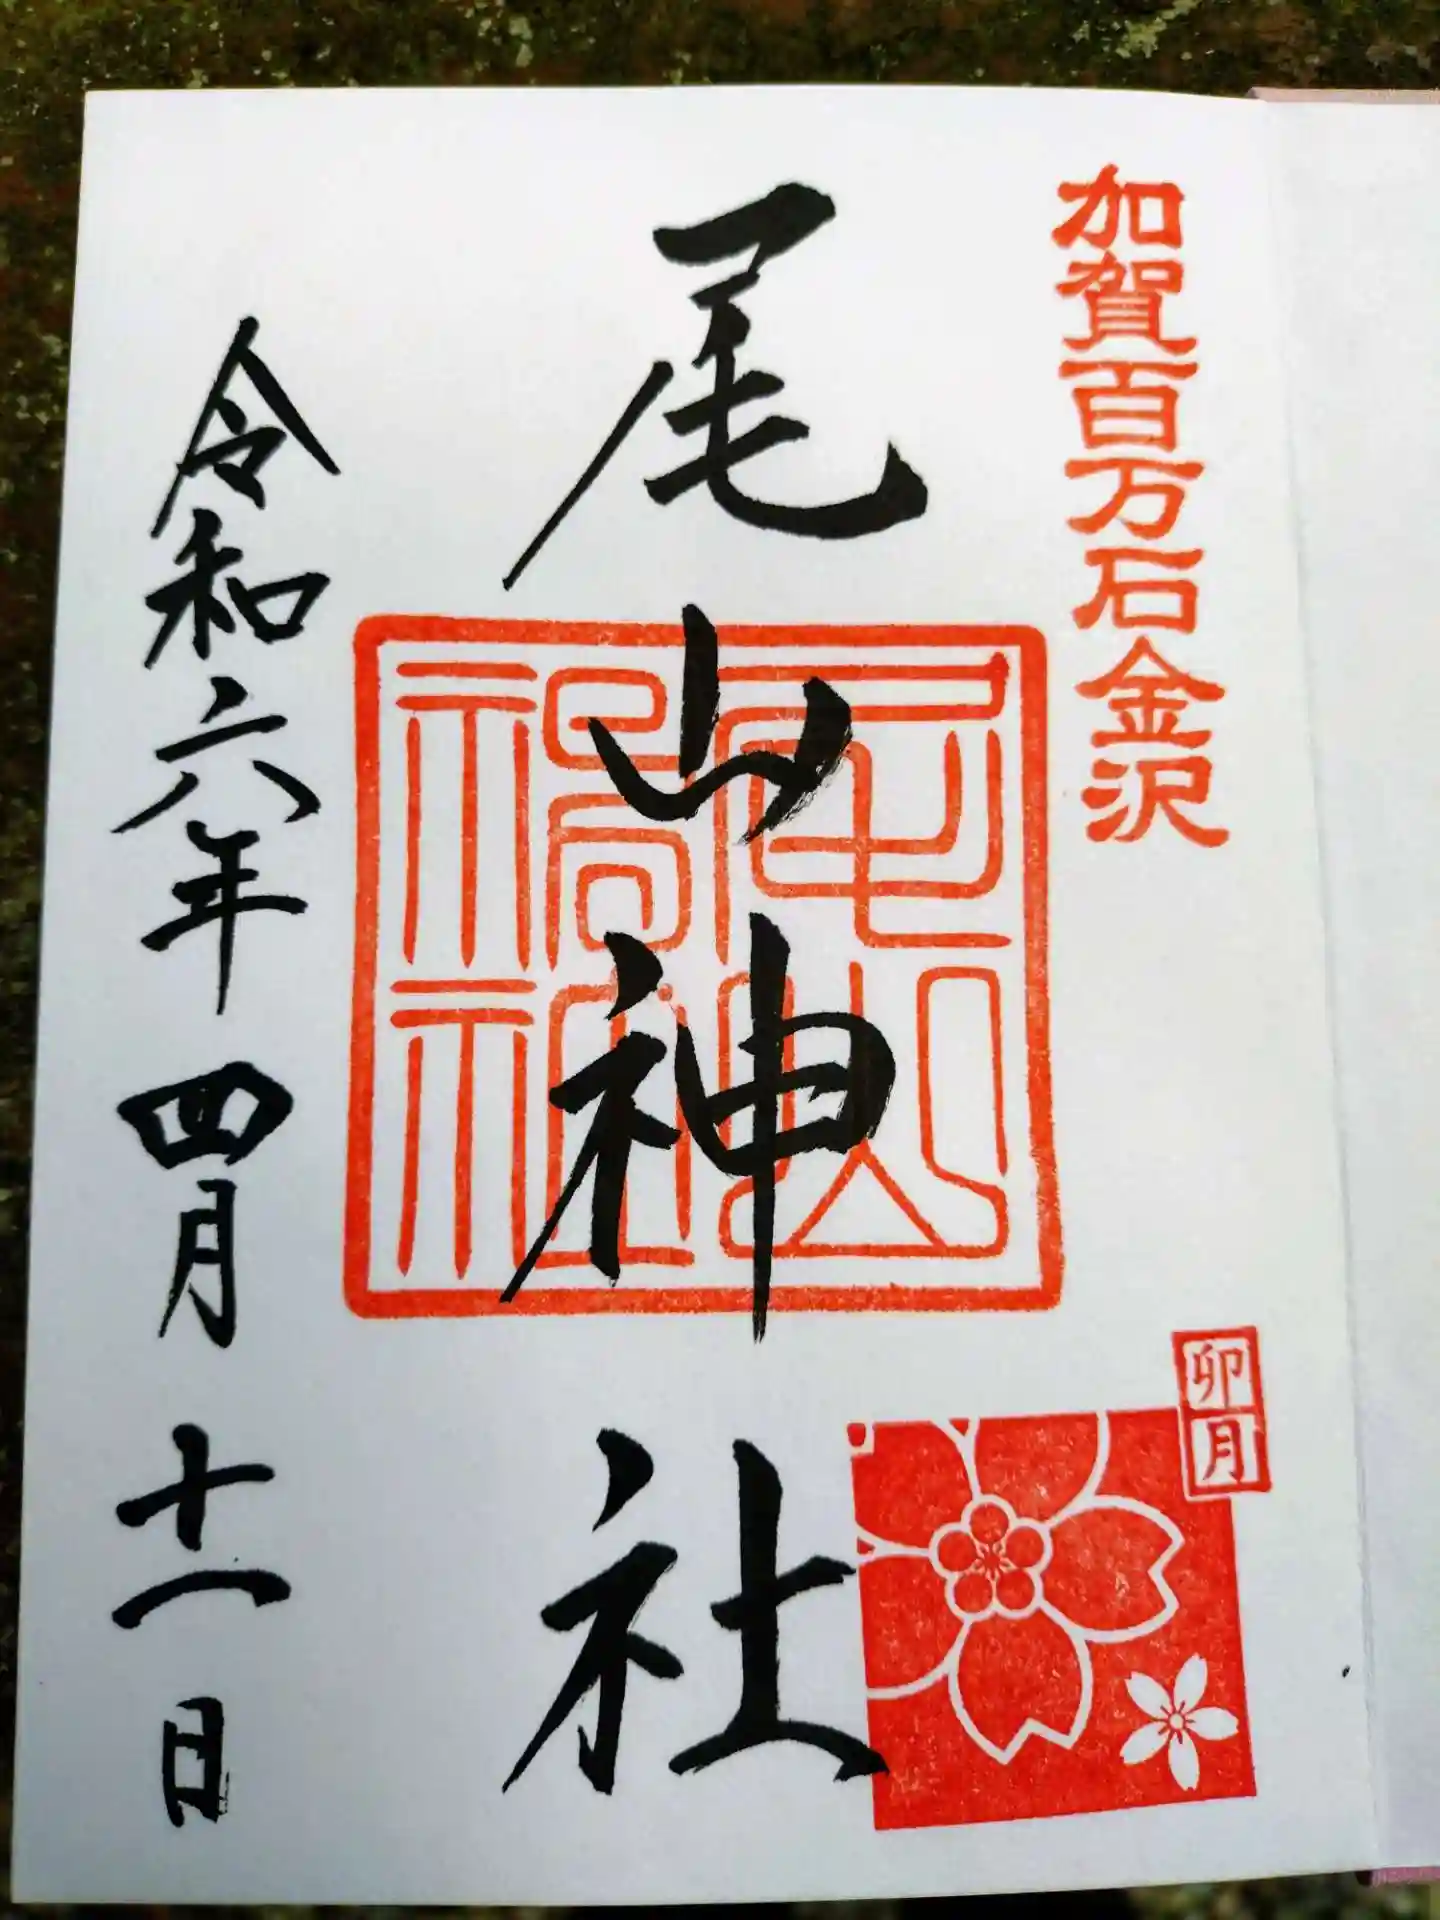 加賀百万石金沢
卯月
尾山神社
尾山神社
令和六年四月十一日